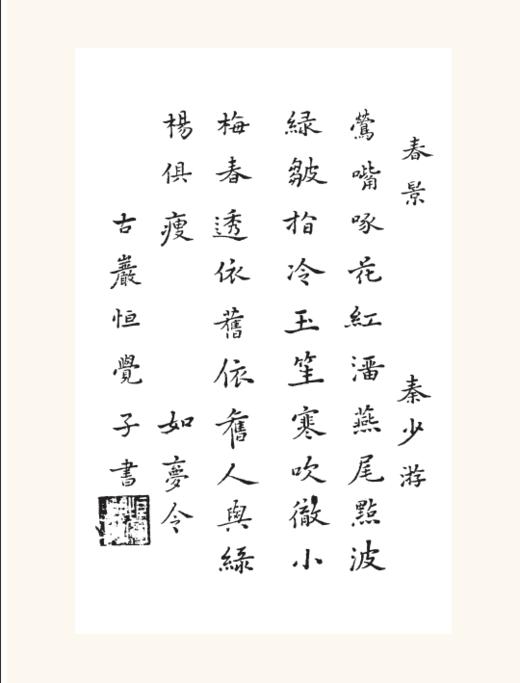 春景 秦少游
鶯嘴啄花紅溜燕尾點波
綠皺指冷玉笙寒吹徹小
梅春透依舊依舊人與綠
楊俱瘦 如夢令
古巖恒覺子書